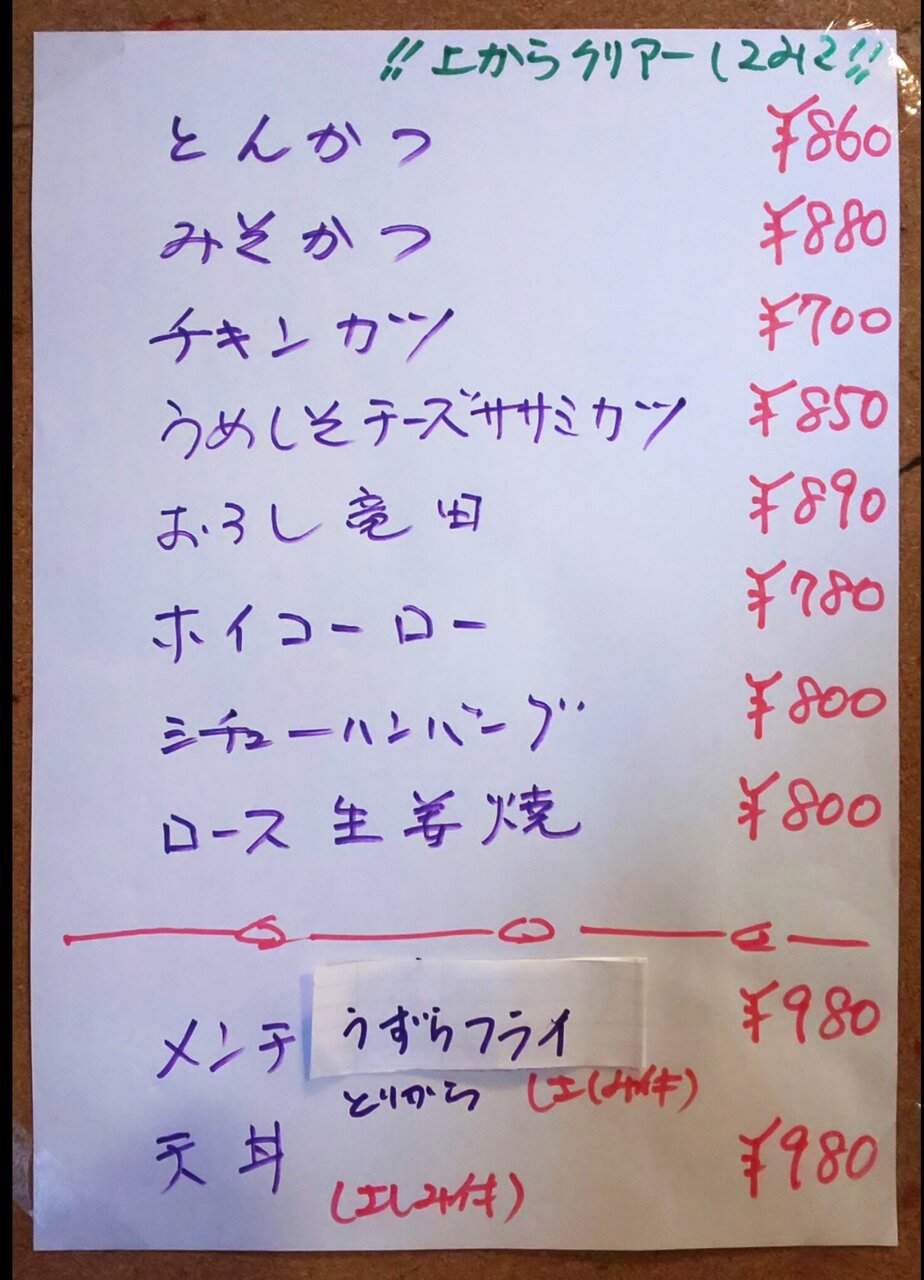 !!上からクリアーしてみて!!
とんかつ ¥860
みそかつ ¥880
チキンカツ ¥700
うめしそチーズササミカツ ¥850
おろし竜田 ¥890
ホイコーロー ¥780
シチューハンバーグ ¥800
ロース生姜焼 ¥800
メンチ うずらフライ ¥980
とりから (さしみ付)
天丼 ¥980
(さしみ付)